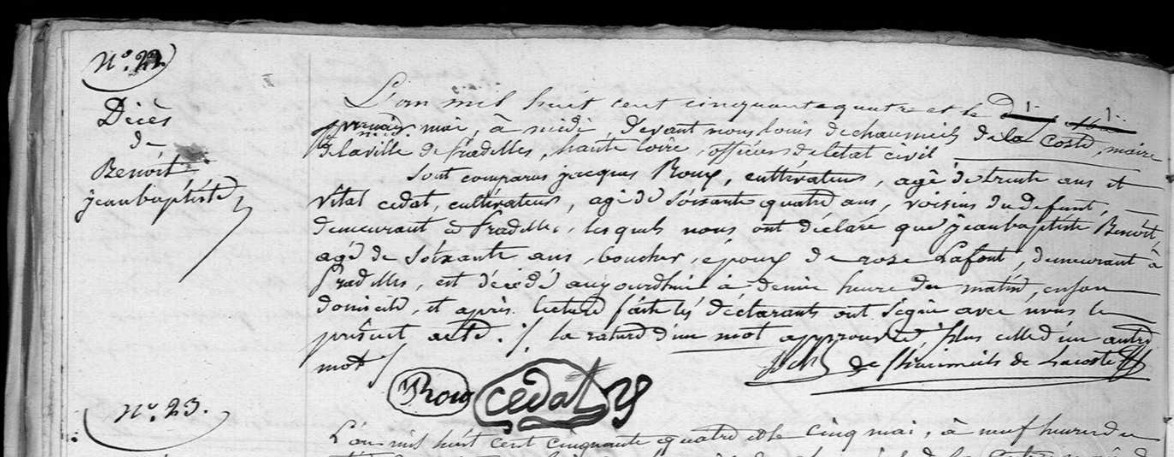 N.° 22.
Décès
de
Benoît
jean baptiste
L'an mil huit cent cinquante quatre et le
premier mai, à midi, devant nous louis dechaumeils de la Coste, maire
de la ville de Pradelles, haute loire, officier de l'etat civil
Sont comparus jacques Roux, cultivateur, agé de trente ans et
vital cedat, cultivateur, agé de soixante quatre ans, voisins du defunt,
demeurant à Pradelles, lesquels nous ont déclaré que jean baptiste Benoit
agé de soixante ans, boucher, époux de rose Lafont, demeurant à
Pradelles, est décédé aujourdhui à demie heure du matin, en son
domicile, et après lecture faite les déclarants ont signé avec nous le
présent acte ./. la rature d'un mot approuvée, plus celle d'un autre
mot /
de Chaumeils de Lacoste
Roux cedat
N.° 23.
L'an mil huit cent cinquante quatre et le cinq mai, à neuf heures du